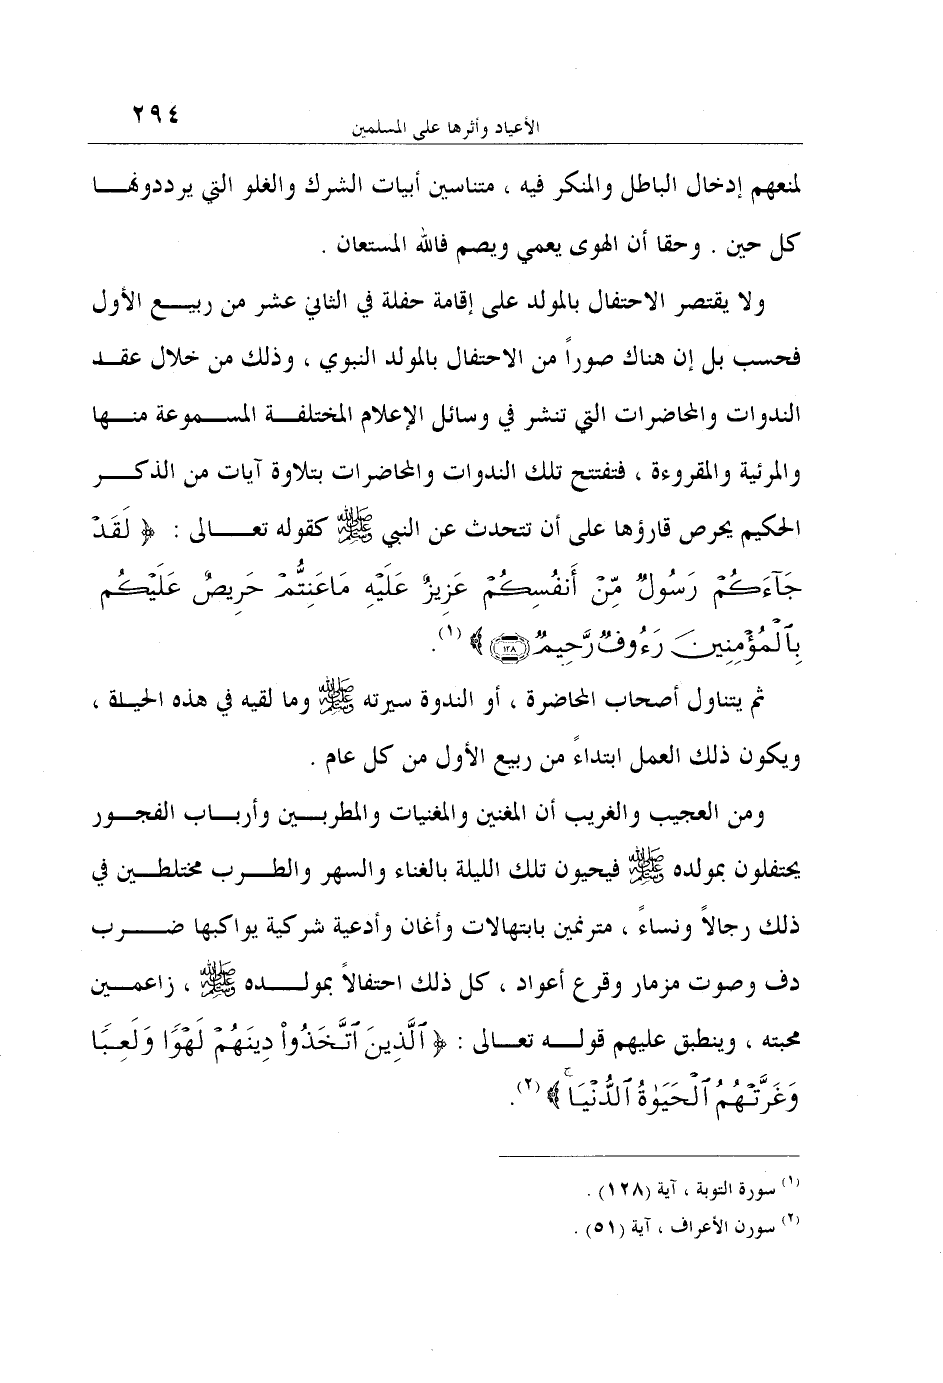 ٢٩٤
الأعياد وأثرها على المسلمين
لمنعهم إدخال الباطل والمنكر فيه ، متناسين أبيات الشرك والغلو التي يرددونها
كل حين . وحقا أن الهوى يعمي ويصم فالله المستعان .
ولا يقتصر الاحتفال بالمولد على إقامة حفلة في الثاني عشر من ربيع الأول
فحسب بل إن هناك صوراً من الاحتفال بالمولد النبوي ، وذلك من خلال عقد
الندوات والمحاضرات التي تنشر في وسائل الإعلام المختلفة المسموعة منها
والمرئية والمقروءة ، فتفتتح تلك الندوات والمحاضرات بتلاوة آيات من الذكر
الحكيم يحرص قارؤها على أن تتحدث عن النبي ﷺ كقوله تعالى : ﴿ لَقَدْ
جَآءَكُمْ رَسُولٌ مِّنْ أَنفُسِكُمْ عَزِيزٌ عَلَيْهِ مَاعَنِتُّمْ حَرِيصٌ عَلَيْكُم
بِٱلْمُؤْمِنِينَ رَءُوفٌ رَّحِيمٌ ١٢٨ ﴾ (١).
ثم يتناول أصحاب المحاضرة ، أو الندوة سيرته ﷺ وما لقيه في هذه الحيلة ،
ويكون ذلك العمل ابتداءً من ربيع الأول من كل عام .
ومن العجيب والغريب أن المغنين والمغنيات والمطربين وأرباب الفجور
يحتفلون بمولده ﷺ فيحيون تلك الليلة بالغناء والسهر والطرب مختلطين في
ذلك رجالاً ونساءً ، مترنمين بابتهالات وأغان وأدعية شركية يواكبها ضرب
دف وصوت مزمار وقرع أعواد ، كل ذلك احتفالاً بمولده ﷺ ، زاعمين
محبته ، وينطبق عليهم قوله تعالى : ﴿ ٱلَّذِينَ ٱتَّخَذُواْ دِينَهُمْ لَهْوًا وَلَعِبًا
وَغَرَّتْهُمُ ٱلْحَيَوٰةُ ٱلدُّنْيَا ۚ ﴾ (٢).
(١) سورة التوبة ، آية (١٢٨) .
(٢) سورن الأعراف ، آية (٥١) .